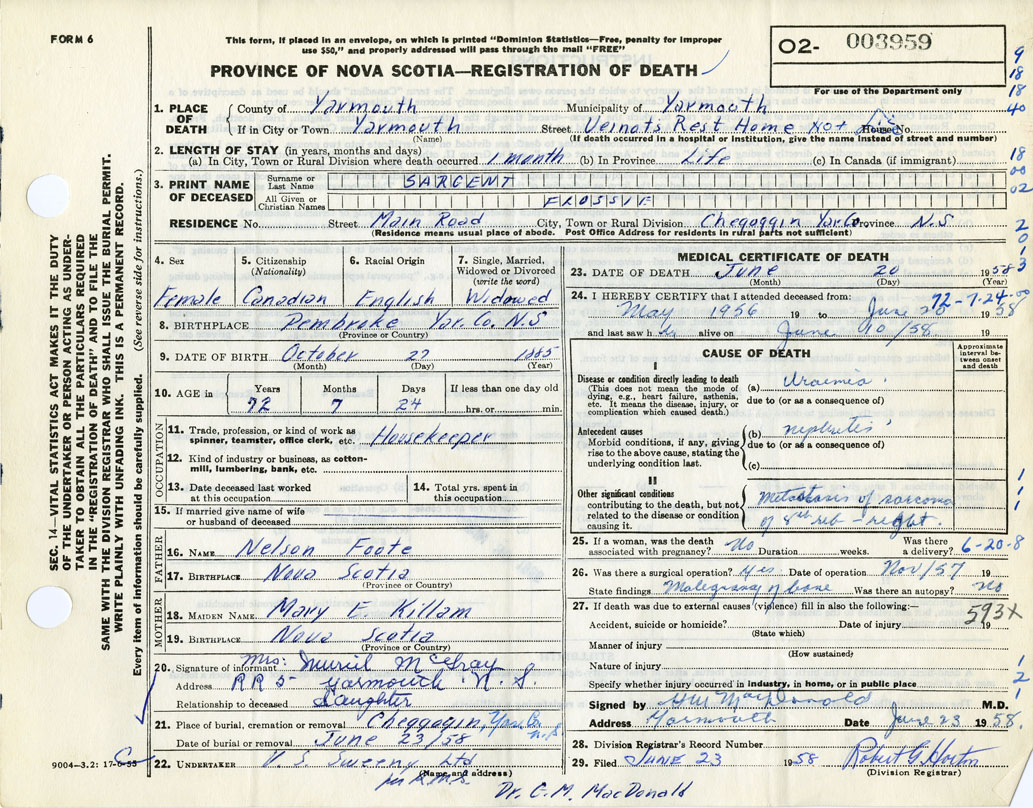 FORM 6
This form, if placed in an envelope, on which is printed "Dominion Statistics—Free, penalty for improper
use $50," and properly addressed will pass through the mail "FREE"
PROVINCE OF NOVA SCOTIA—REGISTRATION OF DEATH
O2- 003959
For use of the Department only
9
18
18
40
18
00
02
2
0
1
3
SEC. 14—VITAL STATISTICS ACT MAKES IT THE DUTY
OF THE UNDERTAKER OR PERSON ACTING AS UNDER-
TAKER TO OBTAIN ALL THE PARTICULARS REQUIRED
IN THE "REGISTRATION OF DEATH" AND TO FILE THE
SAME WITH THE DIVISION REGISTRAR WHO SHALL ISSUE THE BURIAL PERMIT.
WRITE PLAINLY WITH UNFADING INK. THIS IS A PERMANENT RECORD.
Every item of information should be carefully supplied. (See reverse side for instructions.)
1. PLACE OF DEATH
County of Yarmouth Municipality of Yarmouth
If in City or Town Yarmouth Street Vernots Rest Home Not House No.
(Name) (If death occurred in a hospital or institution, give the name instead of street and number)
2. LENGTH OF STAY (in years, months and days)
(a) In City, Town or Rural Division where death occurred 1 month (b) In Province Life (c) In Canada (if immigrant)
3. PRINT NAME OF DECEASED
Surname or Last Name SARGENT
All Given or Christian Names FLOSSIE
RESIDENCE No. Street Main Road City, Town or Rural Division Chegoggin Yar Co. Province N.S
(Residence means usual place of abode. Post Office Address for residents in rural parts not sufficient)
4. Sex
Female
5. Citizenship (Nationality)
Canadian
6. Racial Origin
English
7. Single, Married, Widowed or Divorced (write the word)
Widowed
8. BIRTHPLACE Pembroke Yar. Co. N.S
(Province or Country)
9. DATE OF BIRTH October 27 1885
(Month) (Day) (Year)
10. AGE in
Years Months Days If less than one day old
72 7 24 hrs. or min.
OCCUPATION
11. Trade, profession, or kind of work as spinner, teamster, office clerk, etc. Housekeeper
12. Kind of industry or business, as cotton-mill, lumbering, bank, etc.
13. Date deceased last worked at this occupation
14. Total yrs. spent in this occupation
15. If married give name of wife or husband of deceased
FATHER
16. NAME Nelson Foote
17. BIRTHPLACE Nova Scotia
(Province or Country)
MOTHER
18. MAIDEN NAME Mary E. Killam
19. BIRTHPLACE Nova Scotia
(Province or Country)
20. Signature of informant Mrs. Muriel McGray
Address RR 5 Yarmouth N. S.
Relationship to deceased Daughter
21. Place of burial, cremation or removal Cheggogin, Yar. Co. N.S.
Date of burial or removal June 23/58
22. UNDERTAKER V. S. Sweeny Ltd
(Name and address)
9004-3.2: 17-6-55
MEDICAL CERTIFICATE OF DEATH
23. DATE OF DEATH June 20 1958
(Month) (Day) (Year)
72-7-24
24. I HEREBY CERTIFY that I attended deceased from:
May 1956 19 to June 20 1958
and last saw h er alive on June 20/58 19
CAUSE OF DEATH
Approximate interval between onset and death
I
Disease or condition directly leading to death
(This does not mean the mode of dying, e.g., heart failure, asthenia, etc. It means the disease, injury, or complication which caused death.)
(a) Uraemia
due to (or as a consequence of)
Antecedent causes
Morbid conditions, if any, giving rise to the above cause, stating the underlying condition last.
(b) nephritis
due to (or as a consequence of)
(c)
II
Other significant conditions
contributing to the death, but not related to the disease or condition causing it.
Metastasis of sarcoma
of 8th rib - right.
1
1
1
25. If a woman, was the death associated with pregnancy? No Duration weeks. Was there a delivery?
6-20-8
26. Was there a surgical operation? Yes Date of operation Nov/57 19
State findings Malignancy of bone Was there an autopsy? No
27. If death was due to external causes (violence) fill in also the following:—
593X
Accident, suicide or homicide? Date of injury 19
(State which)
Manner of injury
(How sustained)
Nature of injury
Specify whether injury occurred in industry, in home, or in public place
1
2
1
Signed by MacDonald M.D.
Address Yarmouth Date June 23 1958.
28. Division Registrar's Record Number
29. Filed JUNE 23 1958 Robert G. Horton
(Division Registrar)
Dr. C. M. MacDonald